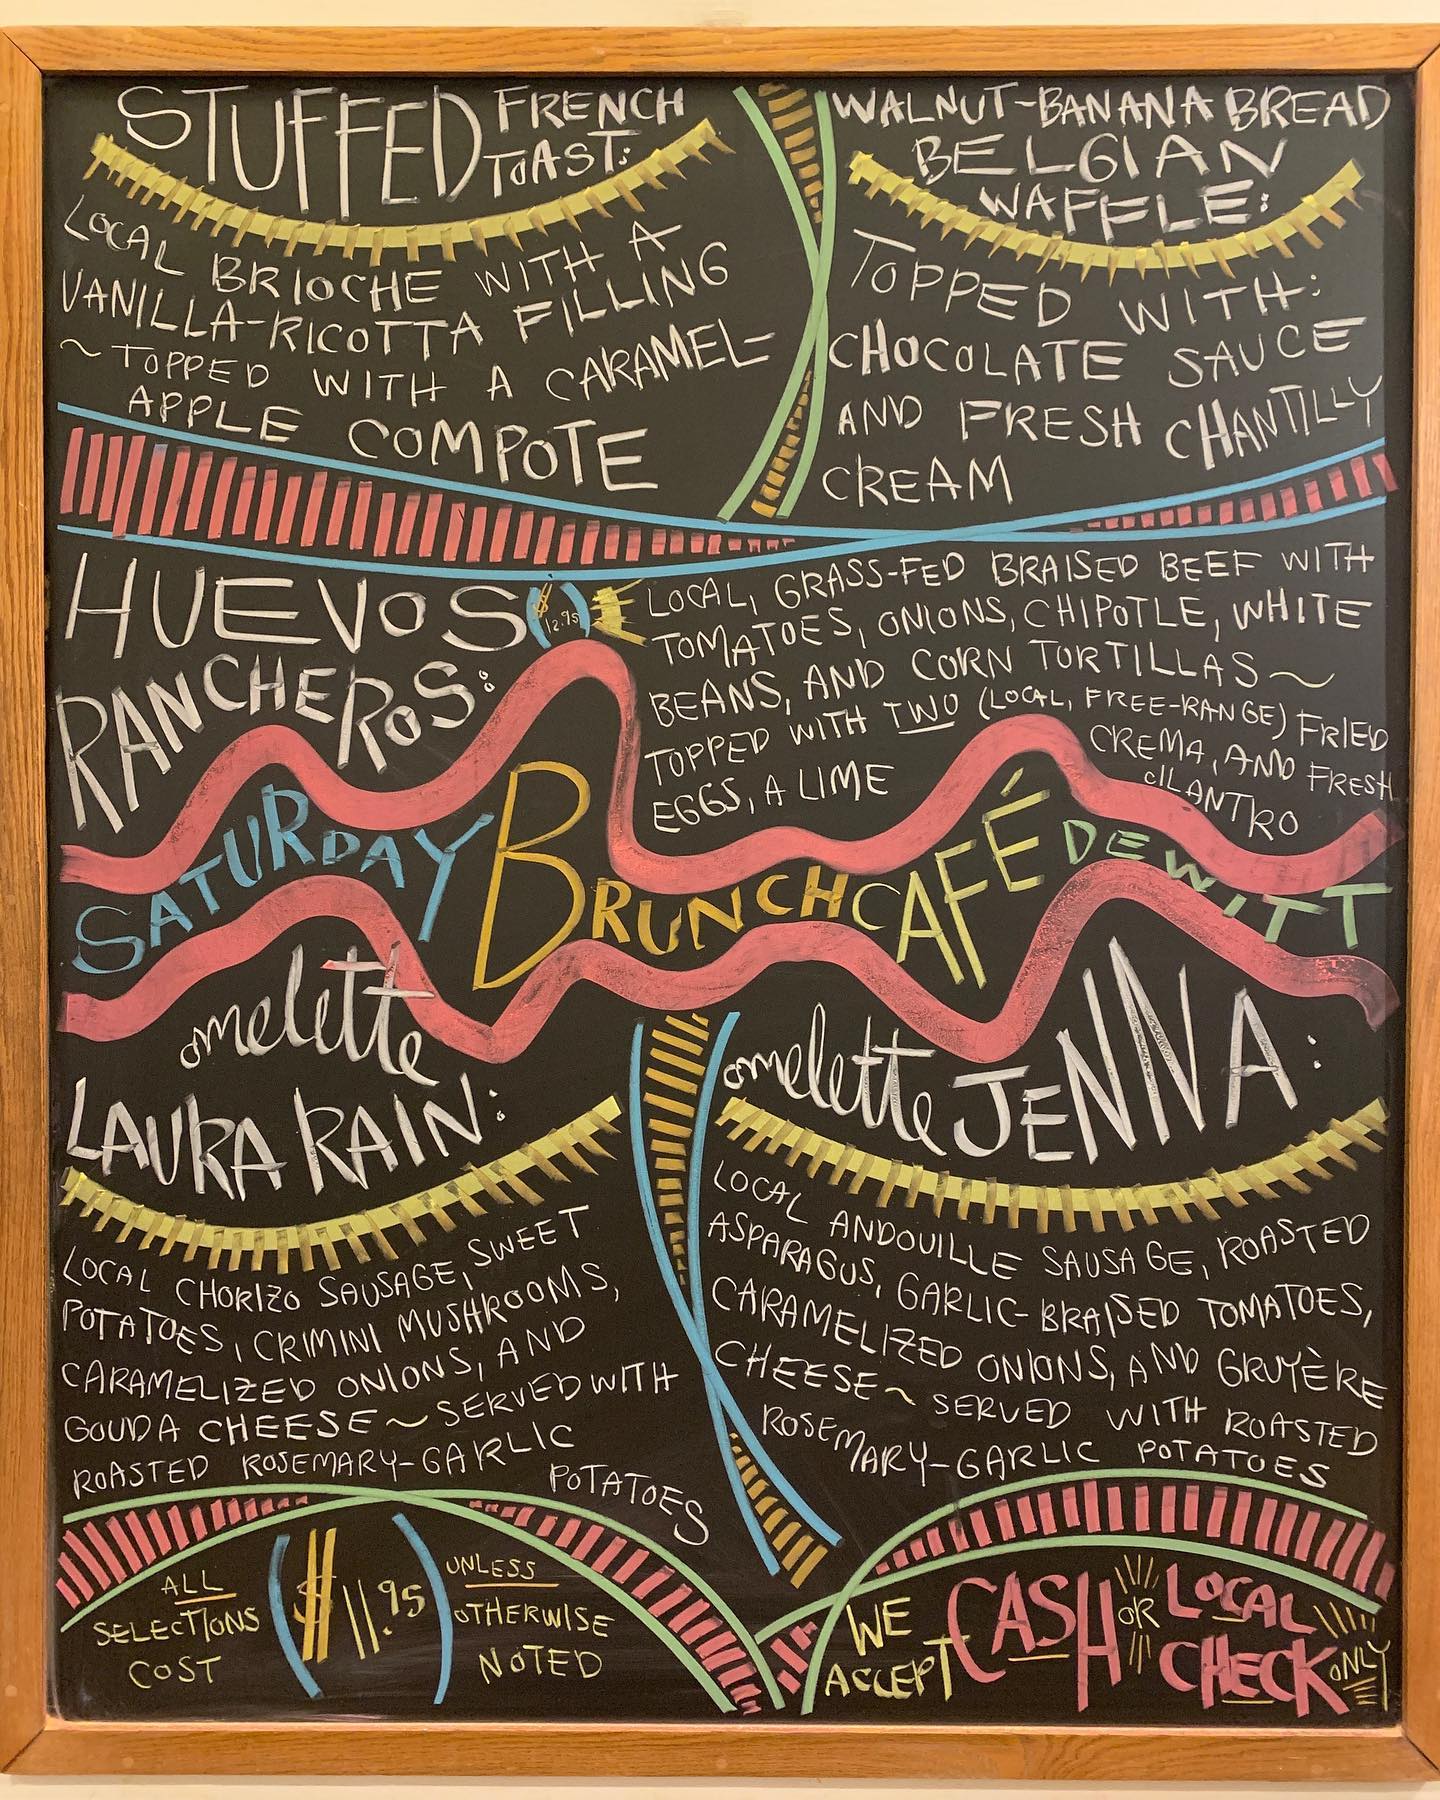 STUFFED FRENCH
TOAST:
LOCAL BRIOCHE WITH A
VANILLA-RICOTTA FILLING
~TOPPED WITH A CARAMEL-
APPLE COMPOTE
WALNUT-BANANA BREAD
BELGIAN
WAFFLE:
TOPPED WITH:
CHOCOLATE SAUCE
AND FRESH CHANTILLY
CREAM
HUEVOS ($12.95)
RANCHEROS:
LOCAL, GRASS-FED BRAISED BEEF WITH
TOMATOES, ONIONS, CHIPOTLE, WHITE
BEANS, AND CORN TORTILLAS~
TOPPED WITH TWO (LOCAL, FREE-RANGE) FRIED
EGGS, A LIME CREMA, AND FRESH
CILANTRO
SATURDAY BRUNCH CAFÉ DEWITT
omelette
LAURA RAIN:
LOCAL CHORIZO SAUSAGE, SWEET
POTATOES, CRIMINI MUSHROOMS,
CARAMELIZED ONIONS, AND
GOUDA CHEESE~SERVED WITH
ROASTED ROSEMARY-GARLIC
POTATOES
omelette JENNA:
LOCAL ANDOUILLE SAUSAGE, ROASTED
ASPARAGUS, GARLIC-BRAISED TOMATOES,
CARAMELIZED ONIONS, AND GRUYÈRE
CHEESE~SERVED WITH ROASTED
ROSEMARY-GARLIC POTATOES
ALL
SELECTIONS
COST
($11.95)
UNLESS
OTHERWISE
NOTED
WE
ACCEPT CASH OR LOCAL
CHECK ONLY